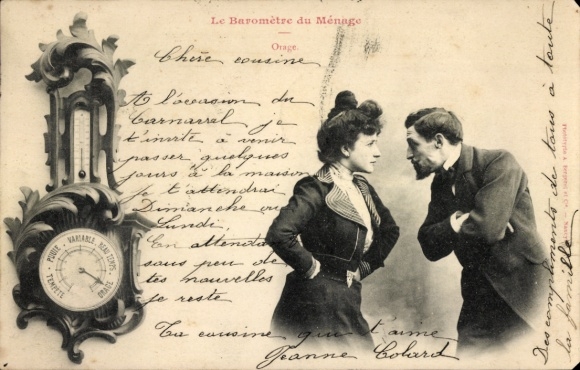 Le Baromètre du Ménage
Orage.
Chère cousine
A l'occasion du
Carnarval je
t'invite à venir
passer quelques
jours à la maison
je t'attendrai
Dimanche ou
Lundi,
En attendant
sous peu de
tes nouvelles
je reste
Ta cousine qui t'aime
Jeanne Colard
Des compliments de tous à toute
la famille
TEMPÊTE
PLUIE
VARIABLE
BEAU TEMPS
ORAGE